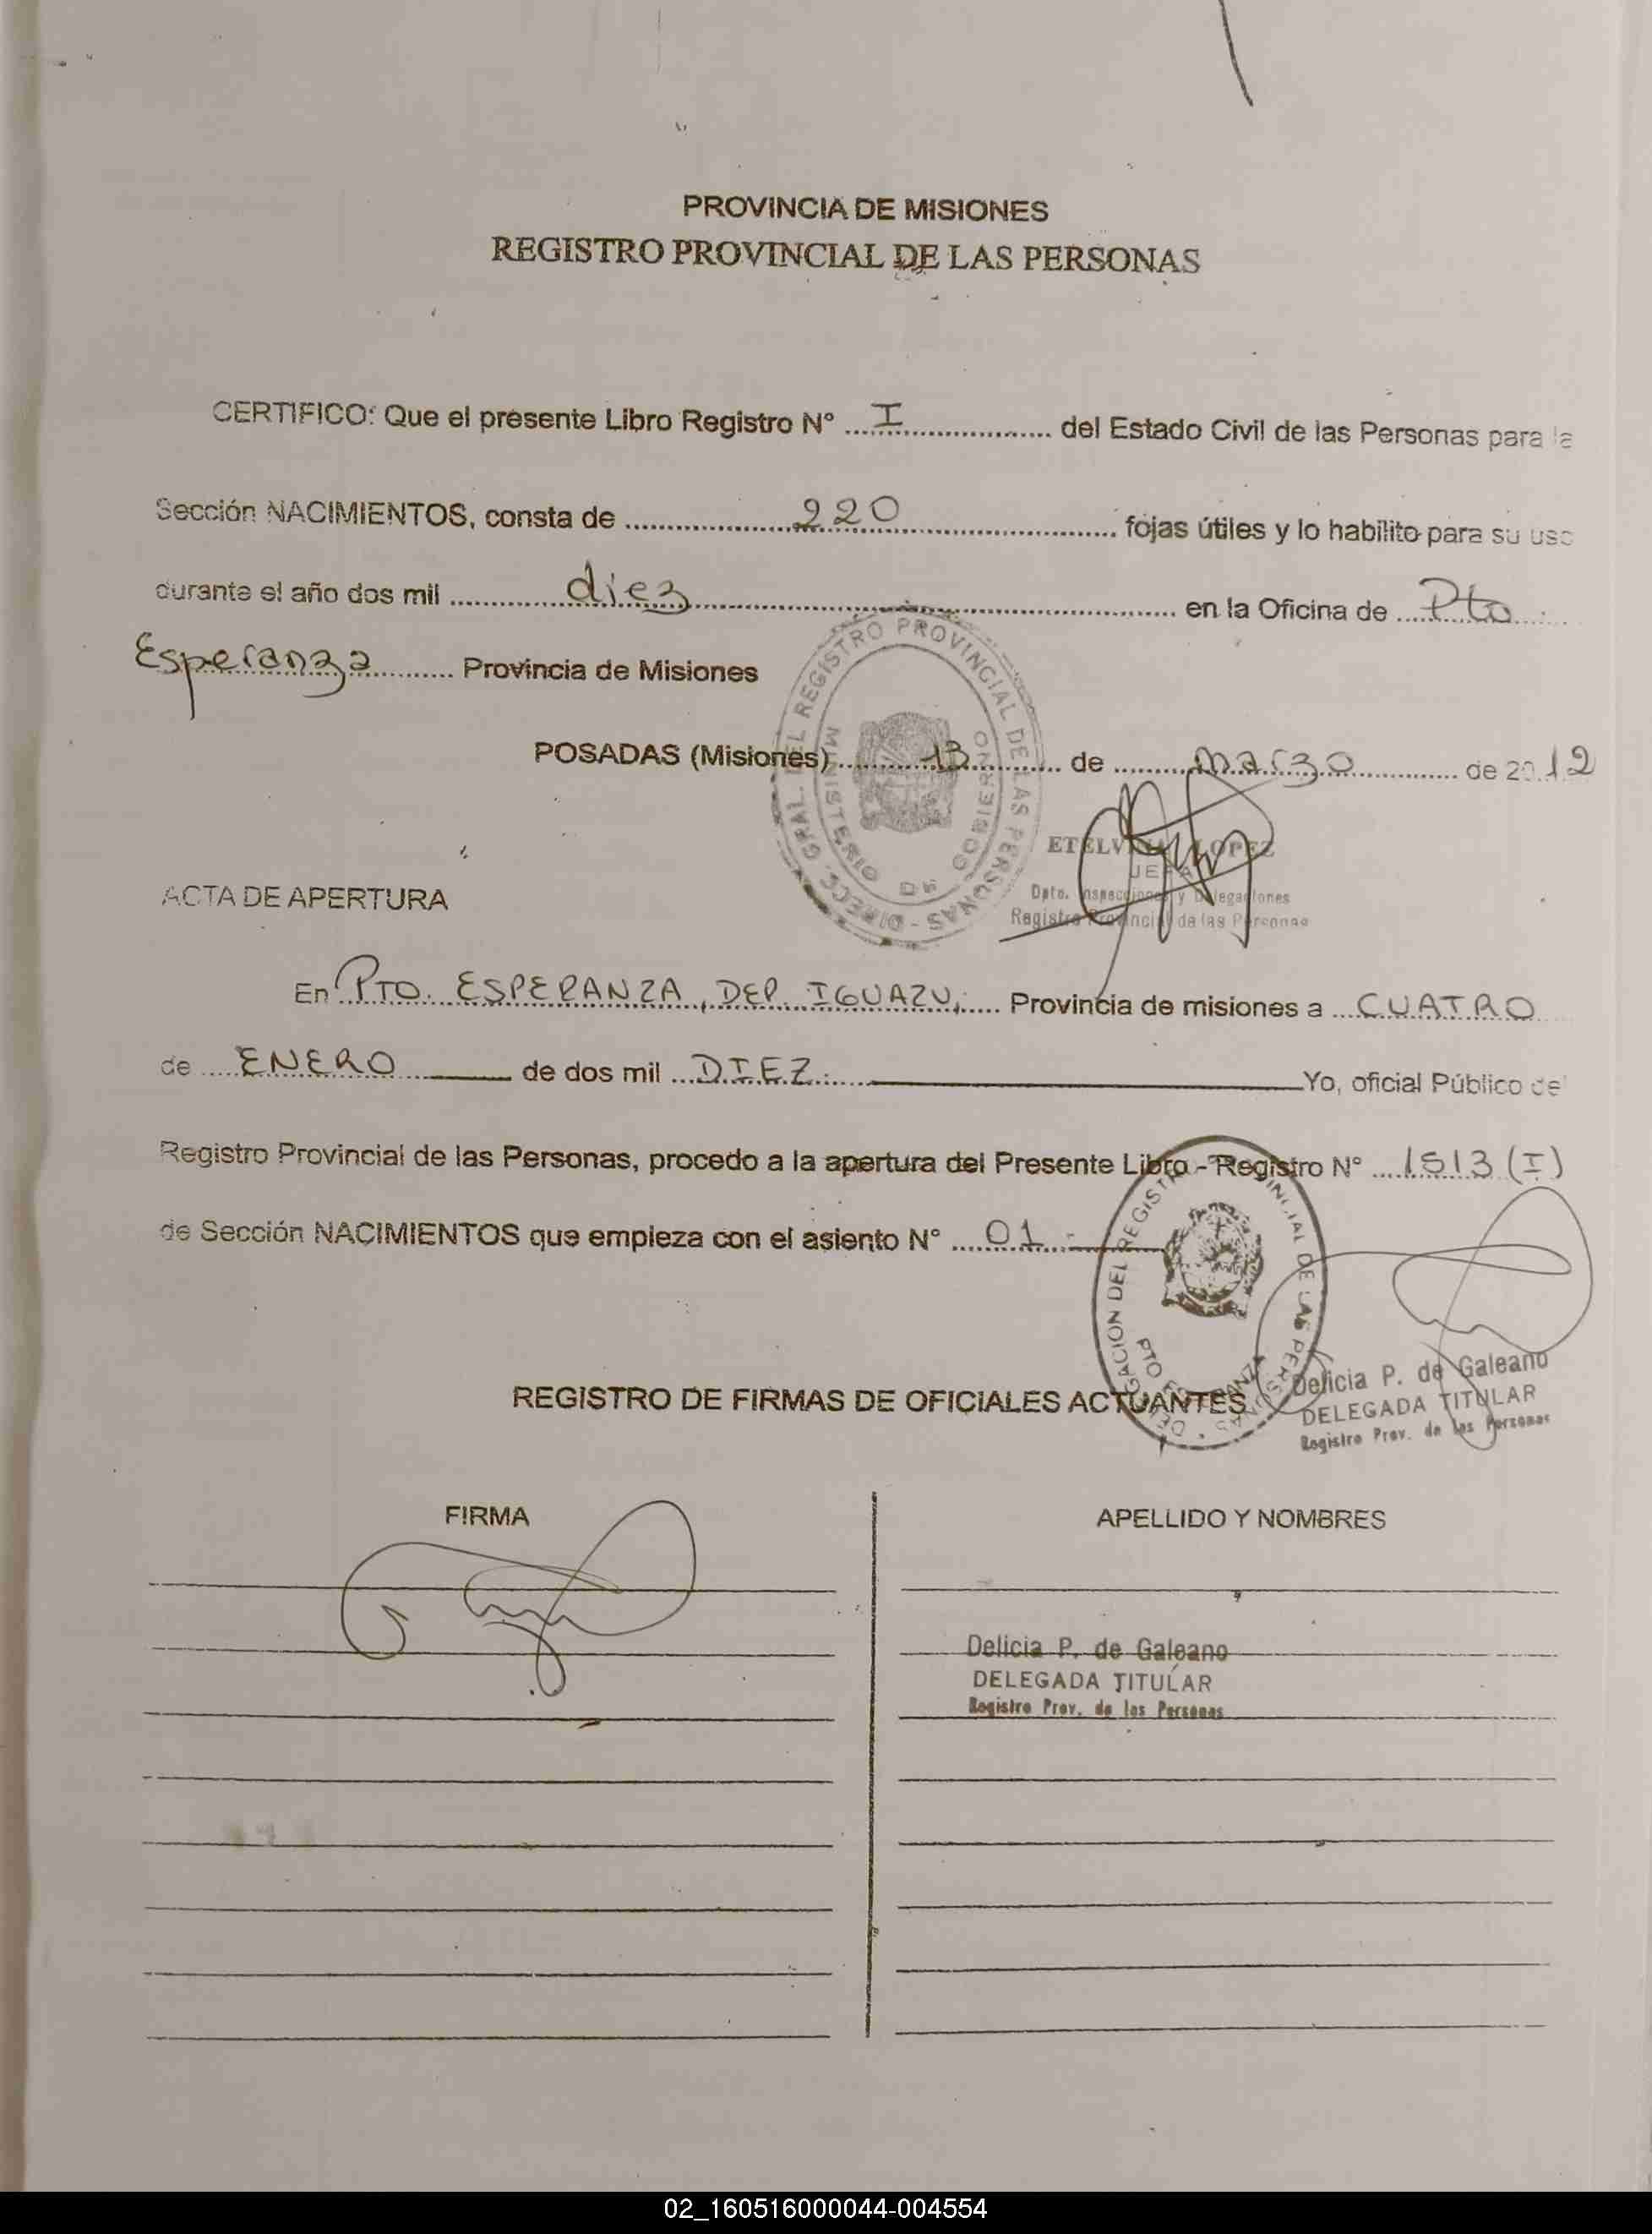 PROVINCIA DE MISIONES
REGISTRO PROVINCIAL DE LAS PERSONAS
CERTIFICO: Que el presente Libro Registro Nº I del Estado Civil de las Personas para la
Sección NACIMIENTOS, consta de 220 fojas útiles y lo habilito para su uso
durante el año dos mil diez en la Oficina de Pto
Esperanza Provincia de Misiones
POSADAS (Misiones) 13 de marzo de 2012
DIREC. GRAL. DEL REGISTRO PROVINCIAL DE LAS PERSONAS
MINISTERIO DE GOBIERNO
ETELVINA LOPEZ
JEFA
Dpto. Inspecciones y Delegaciones
Registro Provincial de las Personas
ACTA DE APERTURA
En PTO. ESPERANZA, DEP. IGUAZU, Provincia de misiones a CUATRO
de ENERO de dos mil DIEZ. Yo, oficial Público del
Registro Provincial de las Personas, procedo a la apertura del Presente Libro - Registro Nº 1513 (I)
de Sección NACIMIENTOS que empieza con el asiento Nº 01.-
DELEGACION DEL REGISTRO PROVINCIAL DE LAS PERSONAS
PTO ESPERANZA
Delicia P. de Galeano
DELEGADA TITULAR
Registro Prov. de las Personas
REGISTRO DE FIRMAS DE OFICIALES ACTUANTES
FIRMA
APELLIDO Y NOMBRES
Delicia P. de Galeano
DELEGADA TITULAR
Registro Prov. de las Personas
02_160516000044-004554